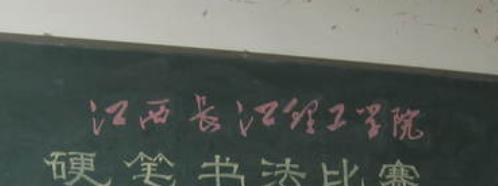 江西长江理工学院
硬笔书法比赛